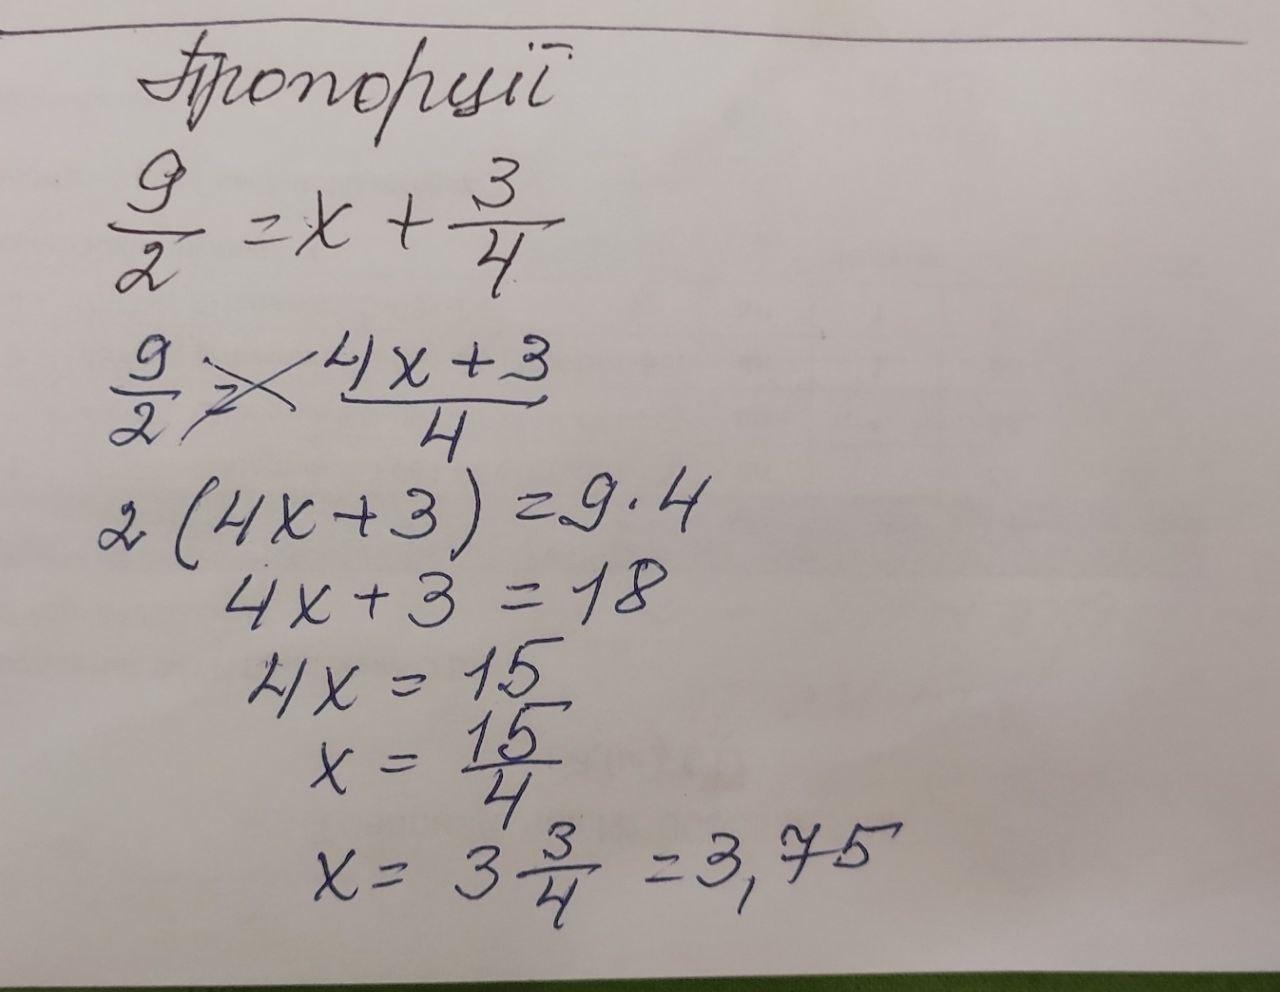 Пропорції
9/2 = x + 3/4
9/2 = (4x + 3)/4
2 (4x + 3) = 9 · 4
4x + 3 = 18
4x = 15
x = 15/4
x = 3 3/4 = 3,75